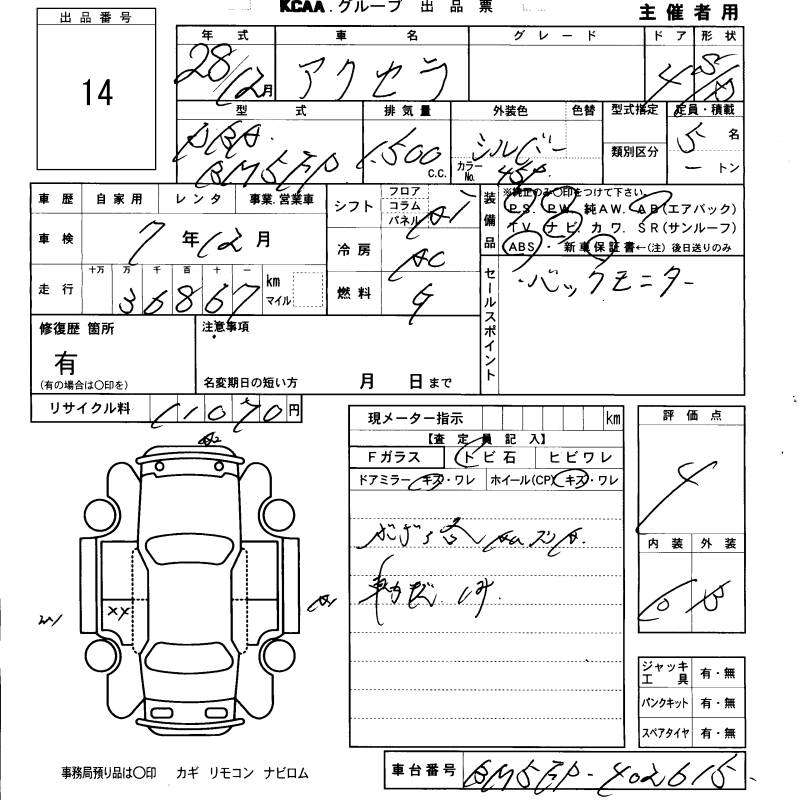 KCAA.グループ 出品票
主催者用
出品番号
14
年式 車名 グレード ドア 形状
28/12月 アクセラ 4
型式 排気量 外装色 色替 型式指定 定員・積載
DBA シルバー 5 名
BM5FP 1,500 C.C. カラーNo. 45P 類別区分 ー トン
車歴 自家用 レンタ 事業.営業車
シフト フロア コラム パネル AT
装備品 ※純正のみ〇印をつけて下さい。
P.S. P.W. 純AW. AB(エアバック)
TV. ナビ. カワ. SR(サンルーフ)
ABS ・ 新車保証書←(注) 後日送りのみ
車検 7年12月
冷房 AC
走行 十万 万 千 百 十 一
36867 km マイル
燃料 G
セールスポイント
・バックモニター
修復歴 箇所 注意事項
有
(有の場合は〇印を) 名変期日の短い方 月 日まで
リサイクル料 11070円
現メーター指示 km
【査定員記入】
Fガラス トビ石 ヒビワレ
ドアミラー キズ・ワレ ホイール(CP) キズ・ワレ
評価点
4
内装 外装
A2
XX
ジャッキ工具 有・無
パンクキット 有・無
スペアタイヤ 有・無
事務局預り品は〇印 カギ リモコン ナビロム
車台番号 BM5FP-402615